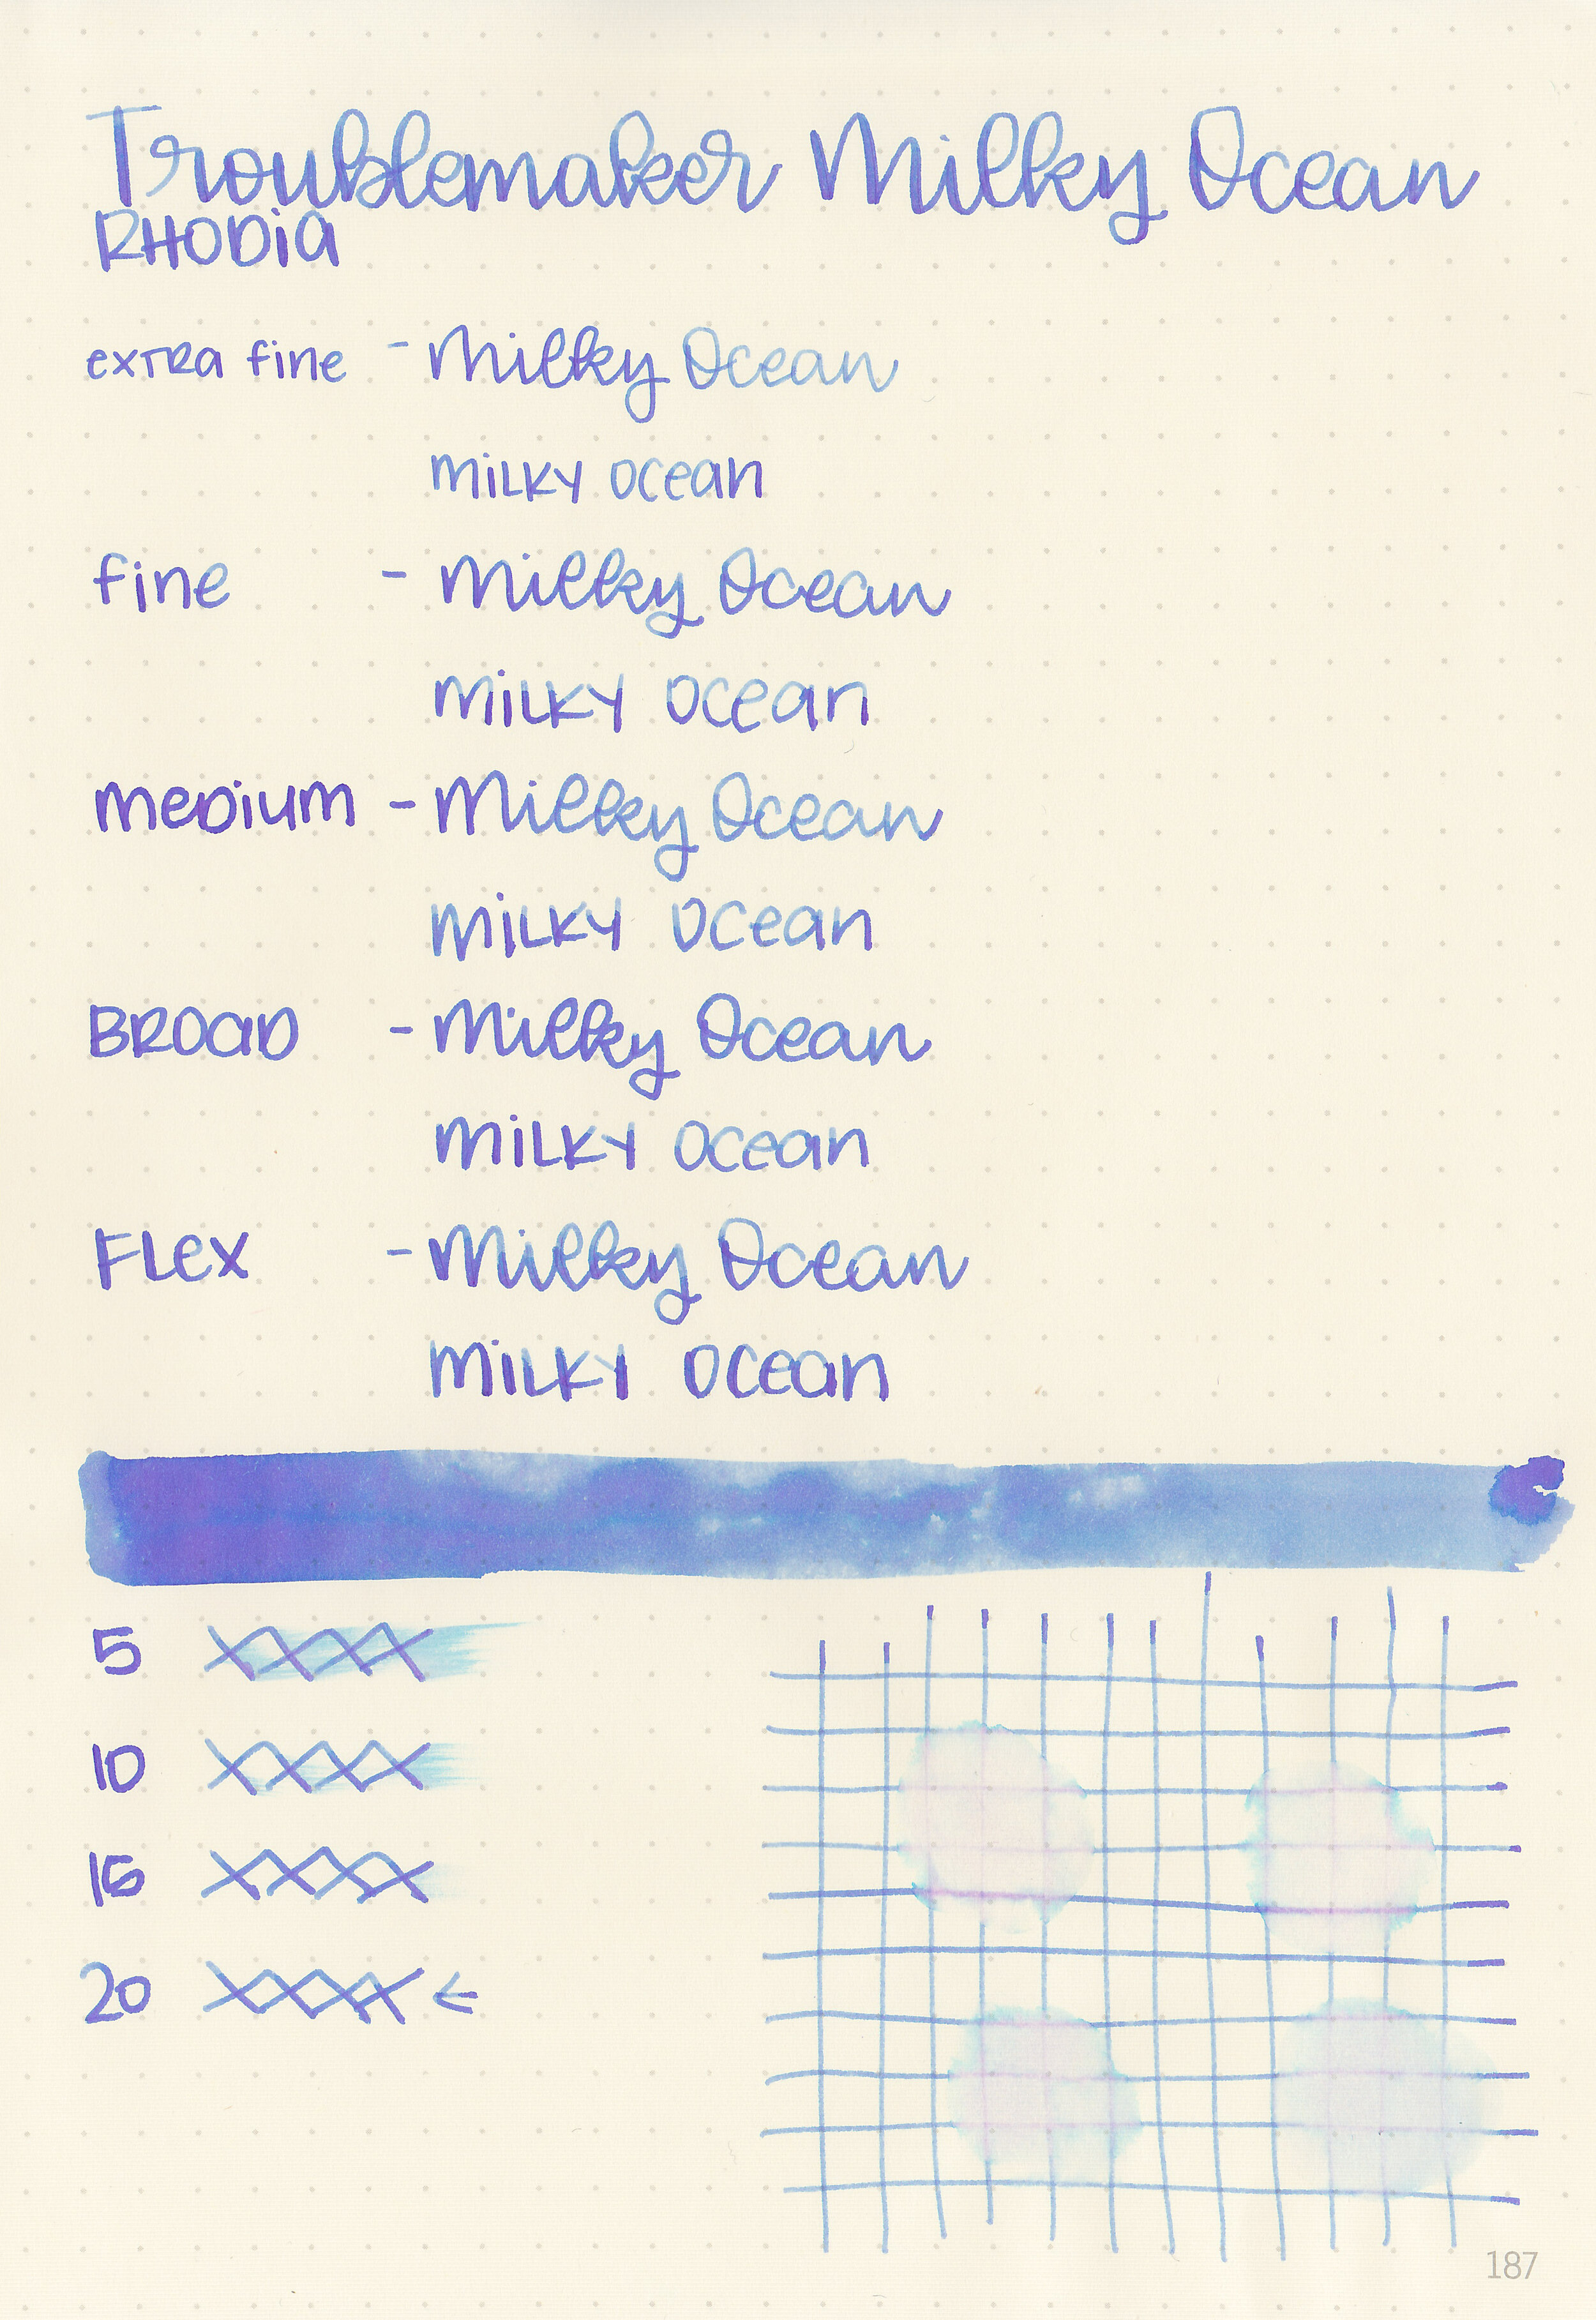 Troublemaker Milky Ocean
RHODIA
extra fine - Milky Ocean
milky ocean
fine - Milky Ocean
milky ocean
medium - Milky Ocean
milky ocean
BROAD - Milky Ocean
milky ocean
FLEX - Milky Ocean
milky ocean
5 XXXX
10 XXXX
15 XXXX
20 XXXX ←
187